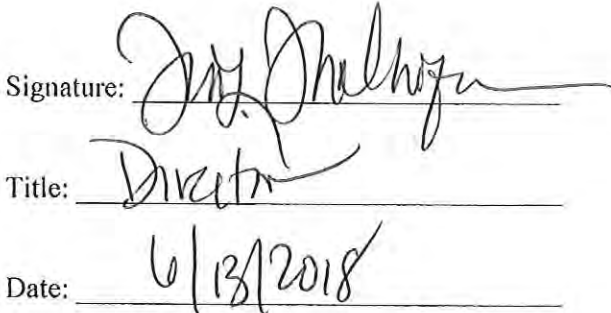 Signature:
Title: Director
Date: 6/13/2018